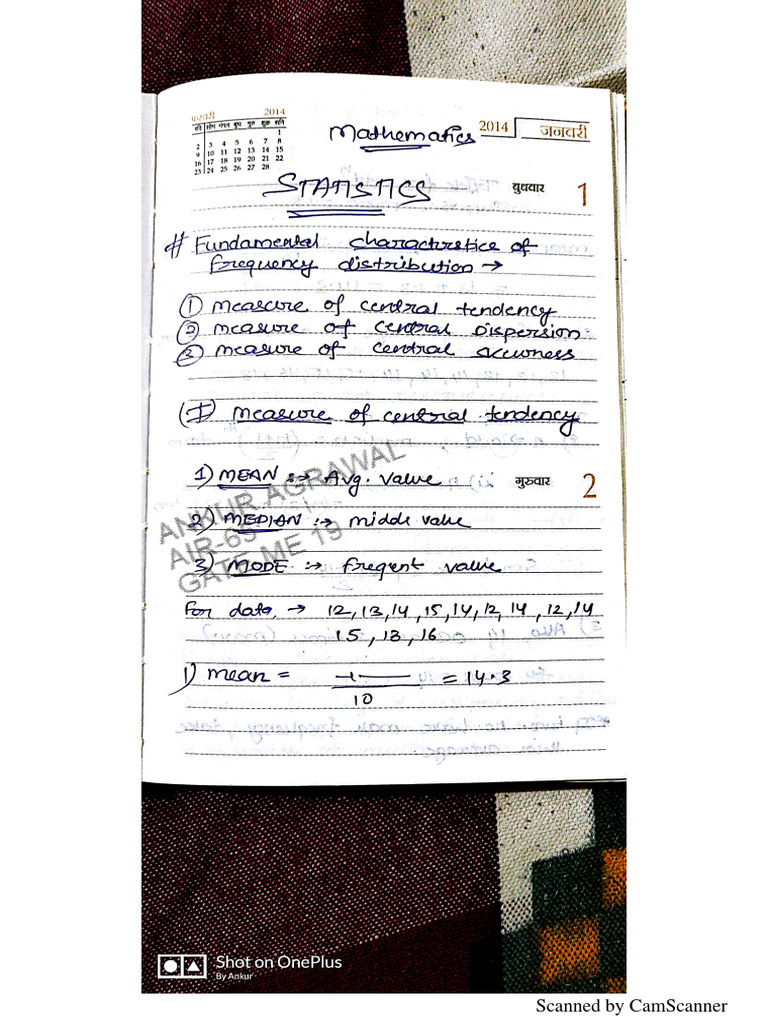 फरवरी 2014
र्वि सोम मंगल बुध गुरु शुक्र शनि
1
2 3 4 5 6 7 8
9 10 11 12 13 14 15
16 17 18 19 20 21 22
23 24 25 26 27 28
Mathematics
2014 जनवरी
STATISTICS
बुधवार 1
# Fundamental charactrstice of
frequency distribution →
① measure of central tendency
② measure of central Dispersion
③ measure of central skewness
(I) measure of central tendency
1) MEAN :→ Avg. value
गुरुवार 2
2) MEDIAN :→ middle value
3) MODE :→ freqent value
ANKUR AGRAWAL
AIR-65
GATE ME 19
For data, → 12, 13, 14, 15, 14, 12, 14, 12, 14
15, 13, 16
1) mean = / 10 = 14.3
Shot on OnePlus
By Ankur
Scanned by CamScanner